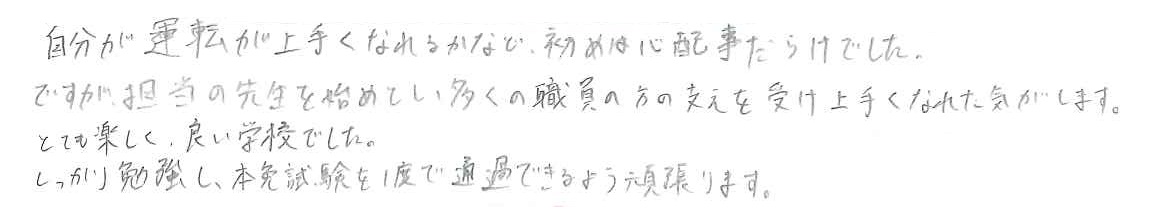 自分が運転が上手くなれるかなど、初めは心配事だらけでした。
ですが、担当の先生を始めとし、多くの職員の方の支えを受け上手くなれた気がします。
とても楽しく、良い学校でした。
しっかり勉強し、本免試験を1度で通過できるよう頑張ります。